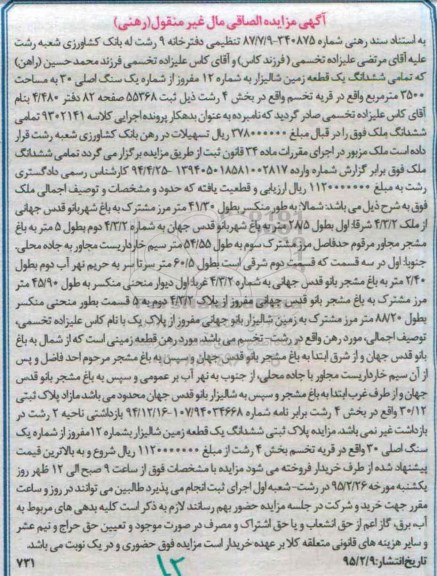 آگهی مزایده الصاقی مال غیر منقول(رهنی)
به استناد سند رهنی شماره ۳۴۰۸۷۵-۸۷/۷/۹ تنظیمی دفترخانه ۹ رشت له بانک کشاورزی شعبه رشت
علیه آقای مرتضی علیزاده تخسمی ( فرزند کاس) و آقای کاس علیزاده تخسمی فرزند محمد حسین (راهن)
که تمامی ششدانگ یک قطعه زمین شالیزار به شماره ۱۲ مفروز از شماره یک سنگ اصلی ۳۰ به مساحت
۳۵۰۰ مترمربع واقع در قریه تخسم واقع در بخش ۴ رشت ذیل ثبت ۵۵۳۶۸ صفحه ۸۲ دفتر ۴/۴۸۰ بنام
آقای کاس علیزاده تخسمی صادر گردید که نامبرده به عنوان بدهکار پرونده اجرایی کلاسه ۹۳۰۲۱۴۱ تمامی
ششدانگ ملک فوق را در قبال مبلغ ۳۷۸۰۰۰۰۰۰ ریال تسهیلات در رهن بانک کشاورزی شعبه رشت قرار
داده است ملک مزبور در اجرای مقررات ماده ۳۴ قانون ثبت از طریق مزایده برگزار می گردد تمامی ششدانگ
ملک فوق برابر گزارش شماره وارده ۱۳۹۴۰۵۰۱۸۵۸۱۰۰۲۸۱۷ -۹۴/۴/۲۵ کارشناس رسمی دادگستری
رشت به مبلغ ۱۱۲۰۰۰۰۰۰۰ ریال ارزیابی و قطعیت یافته که حدود و مشخصات و توصیف اجمالی ملک
فوق به شرح ذیل می باشد: شمالا به طور منکسر بطول ۴۱/۳۰ متر مرز مشترک به باغ شهربانو قدس جهانی
از ملک ۴/۳/۲ شرقا: اول بطول ۲۸۵ متر به باغ شهربانو قدس جهان به شماره ۴/۳/۲ دوم بطول ۵ متر به باغ
مشجر مجاور مرقوم حدفاصل مرز مشترک سوم به طول ۵۴/۵۵ متر سیم خارداریست مجاور به جاده محلی.
جنوبا: اول در سه قسمت که قسمت دوم شرقی است بطول ۶۰/۵ متر سرتاسر به حریم نهر آب دوم بطول
۲/۴۰ متر به باغ مشجر بانو قدس جهانی به شماره ۴/۳/۲ غربا: اول دیوار منحنی منکسر به طول ۴۵/۹۰ متر
مرز مشترک به باغ مشجر بانو قدس جهانی مفروز از پلاک ۴/۳/۲ دوم به ۵ قسمت بطور منحنی منکسر
بطول ۸۸/۲۰ متر مرز مشترک به زمین شالیزار بانو جهانی مفروز از پلاک یک با نام کاس علیزاده تخسمی.
توصیف اجمالی: مورد رهن واقع در رشت- تخسم می باشد. مورد رهن قطعه زمینی است که از شمال به باغ
بانو قدس جهان و از شرق ابتدا به باغ مشجر بانو قدس جهان و سپس به باغ مشجر مرحوم احد فاضل و پس
از آن سیم خارداریست مجاور با جاده محلی، از جنوب به نهر آب بر عمومی و سپس به باغ مشجر بانو قدس
جهان و از طرف غرب ابتدا به باغ مشجر و سپس به شالیزار بانو قدس جهان محدود می باشد مازاد پلاک ثبتی
۳۰/۱۲ واقع در بخش ۴ رشت برابر نامه شماره ۱۰۷/۹۴۰۳۴۶۶۸-۹۴/۱۲/۱۶ بازداشتی ناحیه ۲ رشت در
بازداشت غیر نمی باشد. مزایده پلاک ثبتی ششدانگ یک قطعه زمین شالیزار بشماره ۱۲مفروز از شماره یک
سنگ اصلی ۳۰ واقع در قریه تخسم بخش ۴ رشت از مبلغ ۱۱۲۰۰۰۰۰۰۰ ریال شروع و به بالاترین قیمت
پیشنهاد شده از طرف خریدار فروخته می شود مزایده با مشخصات فوق از ساعت ۹ صبح الی ۱۲ ظهر روز
یکشنبه مورخه ۹۵/۲/۲۶ در رشت- شعبه اول اجرای ثبت انجام می پذیرد طالبین می توانند در روز و ساعت
مقرر جهت خرید و شرکت در جلسه مزایده حضور بهم رسانند لازم به ذکر است کلیه بدهی های مربوط به
آب، برق، گاز اعم از حق انشعاب و یا حق اشتراک و مصرف در صورت موجود و تعیین حق حراج و نیم عشر
و سایر هزینه های قانونی متعلقه کلا بر عهده خریدار است مزایده فوق حضوری و در یک نوبت می باشد.
تاریخ انتشار: ۹۵/۲/۹
۷۳۱
۱۲